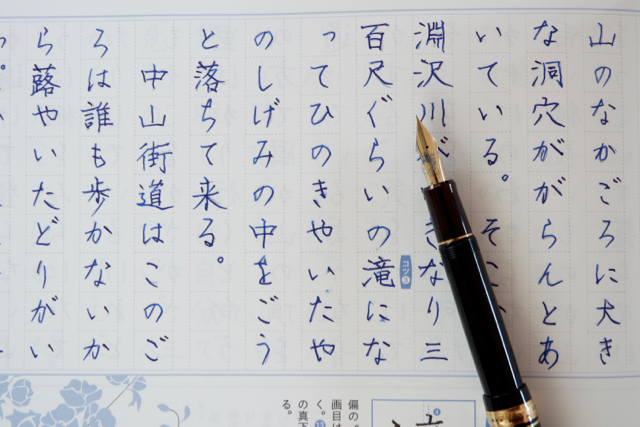 山のなかごろに大き
な洞穴ががらんとあ
いている。そこ
淵沢川が きなり三
百尺ぐらいの滝にな
ってひのきやいたや
のしげみの中をごう
と落ちて来る。
中山街道はこのご
ろは誰も歩かないか
ら蕗やいたどりがい
コツ3
偏の
画目は
く。
の真下
る。